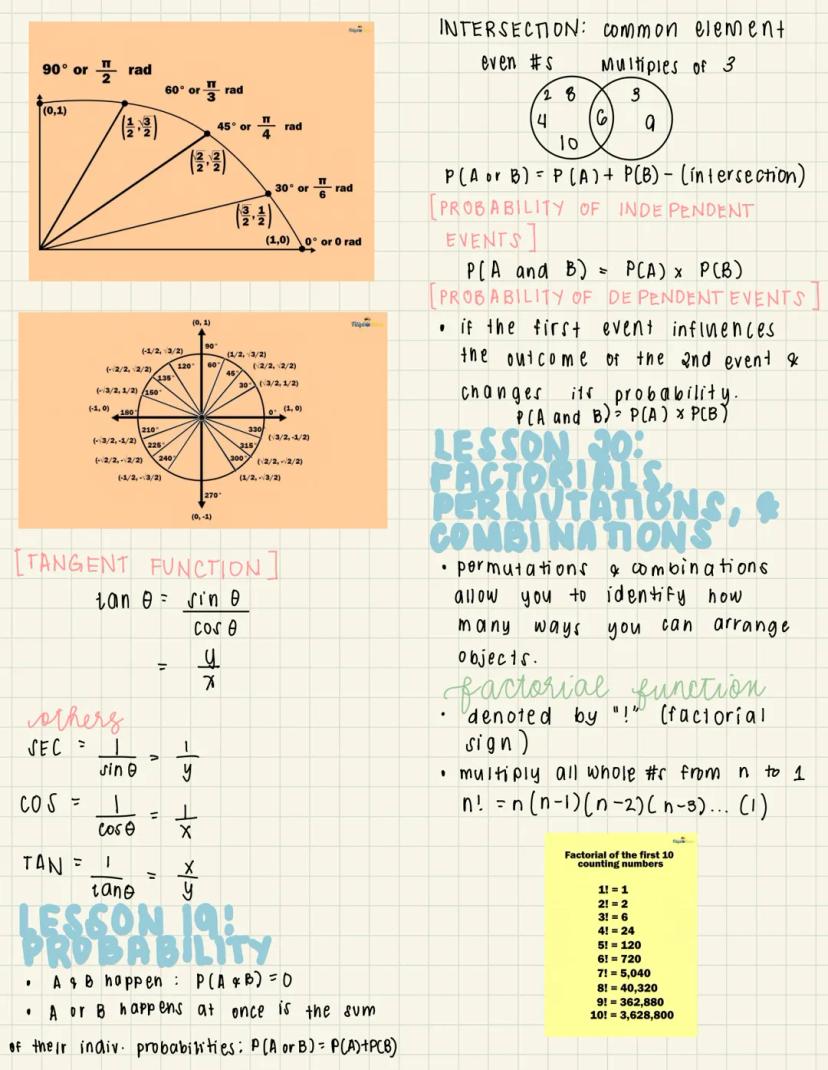 90° or π/2 rad
60° or π/3 rad
(0,1)
(1/2, √3/2)
45° or π/4 rad
(√2/2, √2/2)
30° or π/6 rad
(√3/2, 1/2)
(1,0) 0° or 0 rad
(0, 1)
90°
(-1/2, √3/2) (1/2, √3/2)
120° 60°
(-√2/2, √2/2) (√2/2, √2/2)
135° 45°
(-√3/2, 1/2) 150° 30° (√3/2, 1/2)
(-1, 0) 180° 0° (1, 0)
210° 330
(-√3/2, -1/2) (√3/2, -1/2)
225° 315°
(-√2/2, -√2/2) 240° 300° (√2/2, -√2/2)
(-1/2, -√3/2) (1/2, -√3/2)
270°
(0, -1)
[TANGENT FUNCTION]
tan θ = sin θ / cos θ
= y / x
others
SEC = 1 / sin θ = 1 / y
COS = 1 / cos θ = 1 / x
TAN = 1 / tan θ = x / y
LESSON 19:
PROBABILITY
• A & B happen : P(A & B) = 0
• A or B happens at once is the sum
of their indiv. probabilities: P(A or B) = P(A)+P(B)
INTERSECTION: common element
even #s Multiples of 3
2 8 3
4 6 9
10
P(A or B) = P(A) + P(B) - (intersection)
[PROBABILITY OF INDEPENDENT
EVENTS]
P(A and B) = P(A) x P(B)
[PROBABILITY OF DEPENDENT EVENTS]
• if the first event influences
the outcome of the 2nd event &
changes its probability.
P(A and B) = P(A) x P(B)
LESSON 20:
FACTORIALS,
PERMUTATIONS, &
COMBINATIONS
• permutations & combinations
allow you to identify how
many ways you can arrange
objects.
factorial function
• denoted by "!" (factorial
sign)
• multiply all whole #s from n to 1
n! = n(n-1)(n-2)(n-3)... (1)
Factorial of the first 10
counting numbers
1! = 1
2! = 2
3! = 6
4! = 24
5! = 120
6! = 720
7! = 5,040
8! = 40,320
9! = 362,880
10! = 3,628,800